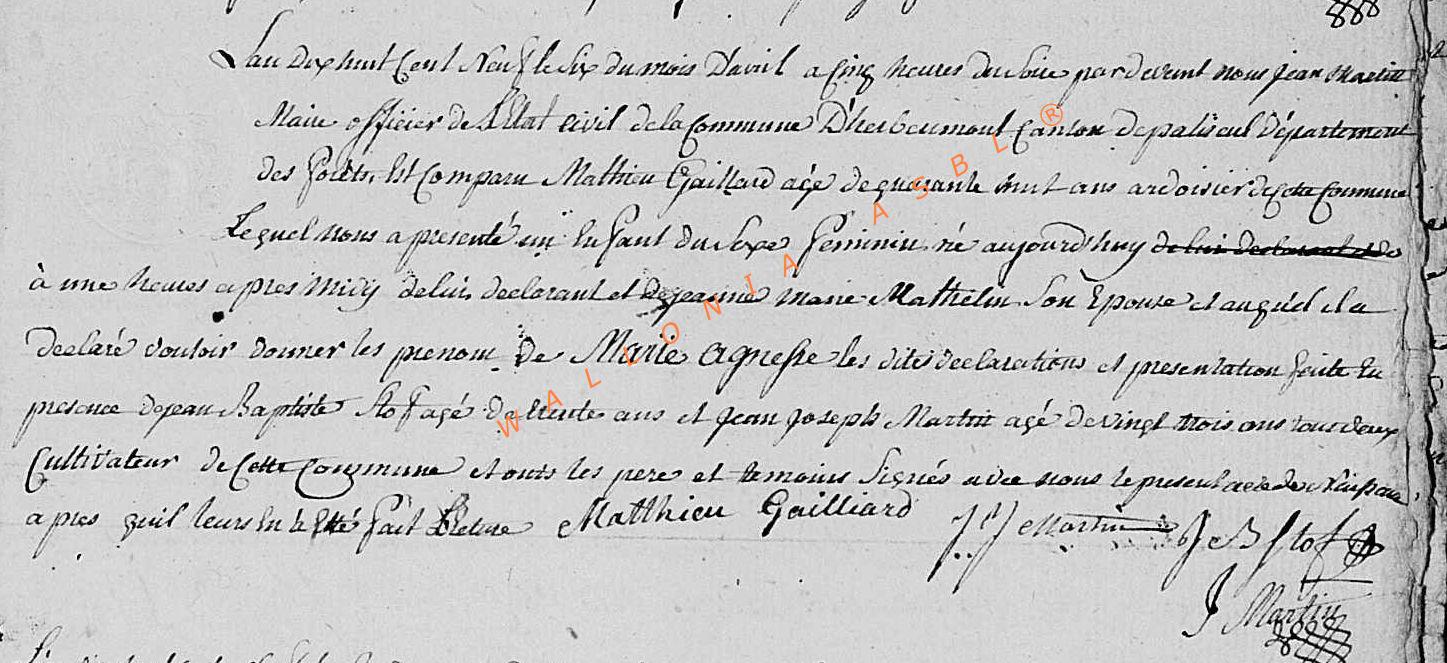 L'an dix huit Cent Neuf le Six du mois D'avril a Cinq heures du Soire par devent nous Jean Martin
Maire officier de L'Etat Civil de la Commune D'herbeumont Canton de paliseul Département
des Forêts, Est Comparu Mathieu Gaillard agé de quarante huit ans ardoisier de Cette Commune
Lequel nous a presenté un Enfant du Sexe Feminin né aujourd'huy de lui declarant et de
à une heures apres Midy de lui declarant et de jeanne marie Mathelin Son Epouse et auquel il a
declaré vouloir donner les prenom de Marie Agnesse les dites declarations et presentation faite En
presence de jean Baptiste Stof agé de trente ans et Jean Joseph Martin agé de vingt trois ans tous deux
Cultivateur de Cette Commune et onts les pere et temoins Signés avec nous le present acte de Naissance
apres quil leurs En a Etté Fait Lecture Matthieu Gailliard J J Martin J B Stof
J Martin
WALLONIA ASBL ®